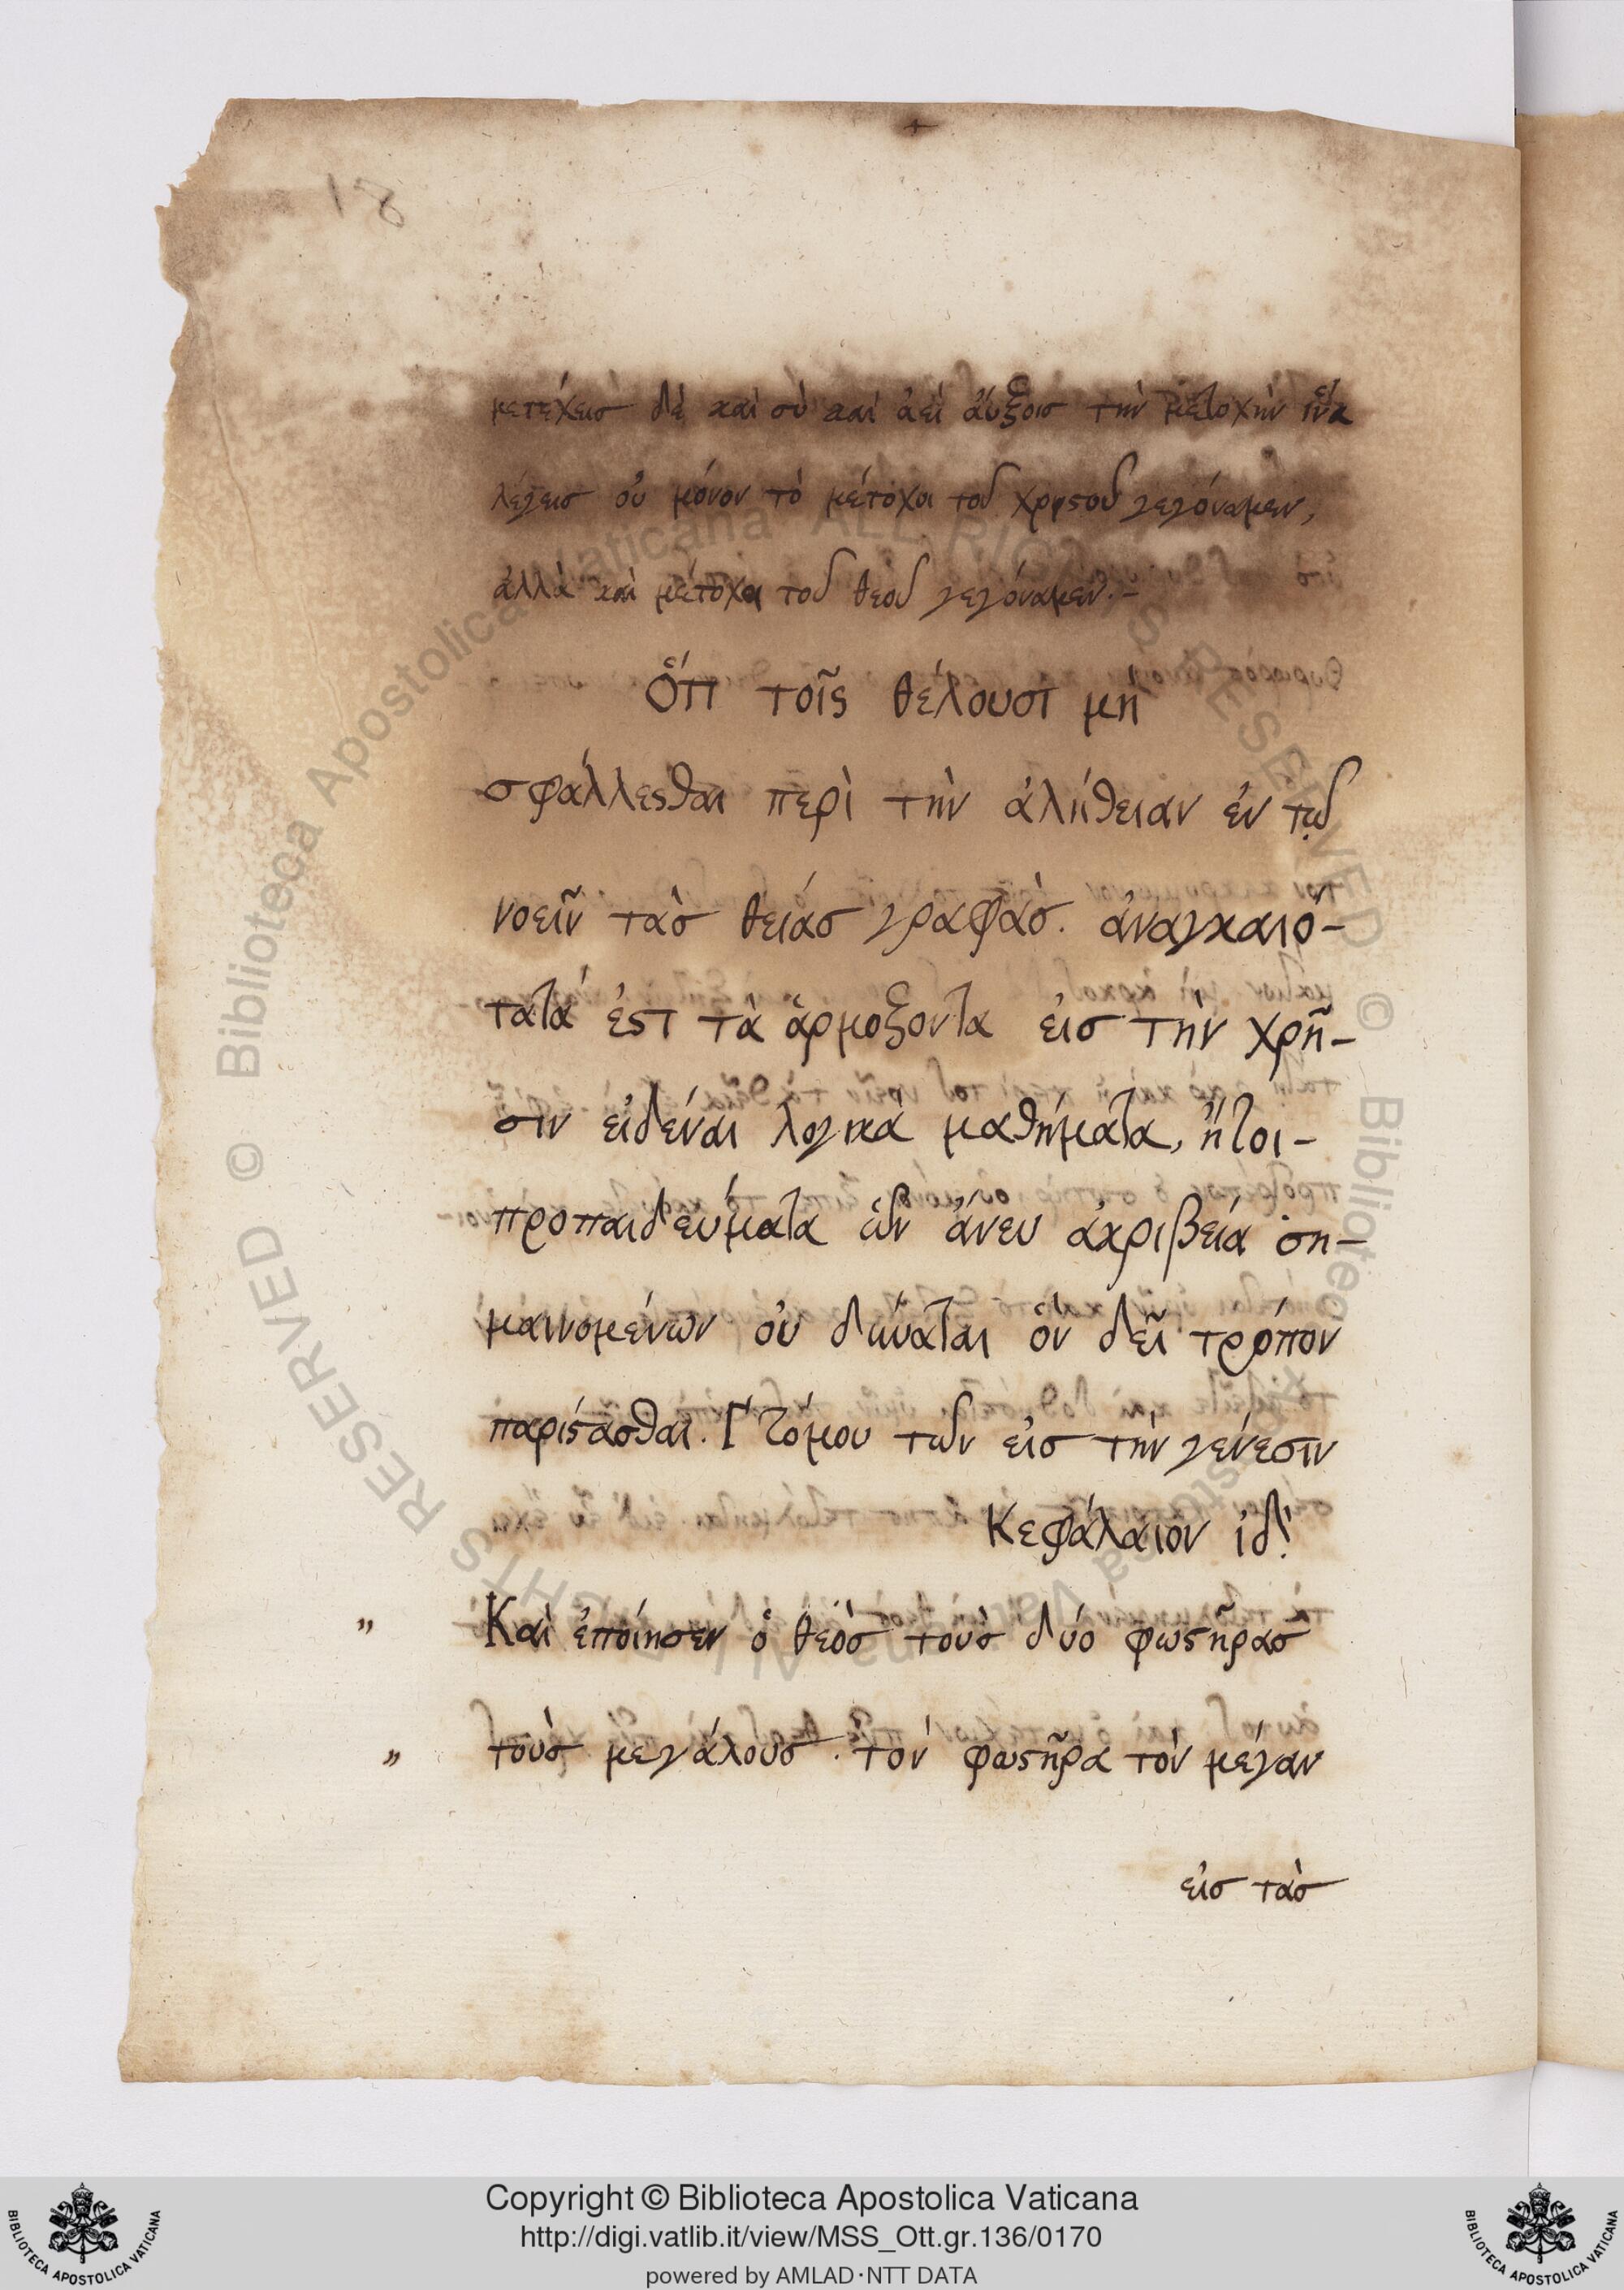 18
μετέχεισ δὲ καὶ σὺ καὶ ἀεὶ ἀύξοισ τὴν μετοχὴν ἵνα
λέγεισ οὐ μόνον τὸ μέτοχοι τοῦ χρηστοῦ γεγόναμεν,
ἀλλὰ καὶ μέτοχοι τοῦ θεοῦ γεγόναμεν.–
Ὅτι τοῖς θέλουσι μὴ
σφάλλεσθαι περὶ τὴν ἀλήθειαν ἐν τῷ
νοεῖν τὰσ θείασ γραφάσ. ἀναγκαιό–
τατά ἐστι τὰ ἁρμοξοντα εἰσ τὴν χρῆ–
σιν εἰδέναι λογικὰ μαθήματα, ἤτοι–
προπαιδεύματα ὧν ἄνευ ἀκριβεία ση–
μαινομένων οὐ δύναται ὃν δεῖ τρόπον
παρίστασθαι. Γ΄ τόμου τῶν εἰσ τὴν γένεσιν
Κεφάλαιον ιδ΄.
" Καὶ ἐποίησεν ὁ θεὸσ τοὺσ δύο φωστῆρασ
" τοὺσ μεγάλουσ. τὸν φωστῆρα τὸν μέγαν
εἰσ τὰσ
Copyright © Biblioteca Apostolica Vaticana
http://digi.vatlib.it/view/MSS_Ott.gr.136/0170
powered by AMLAD·NTT DATA
BIBLIOTECA APOSTOLICA VATICANA
BIBLIOTECA APOSTOLICA VATICANA